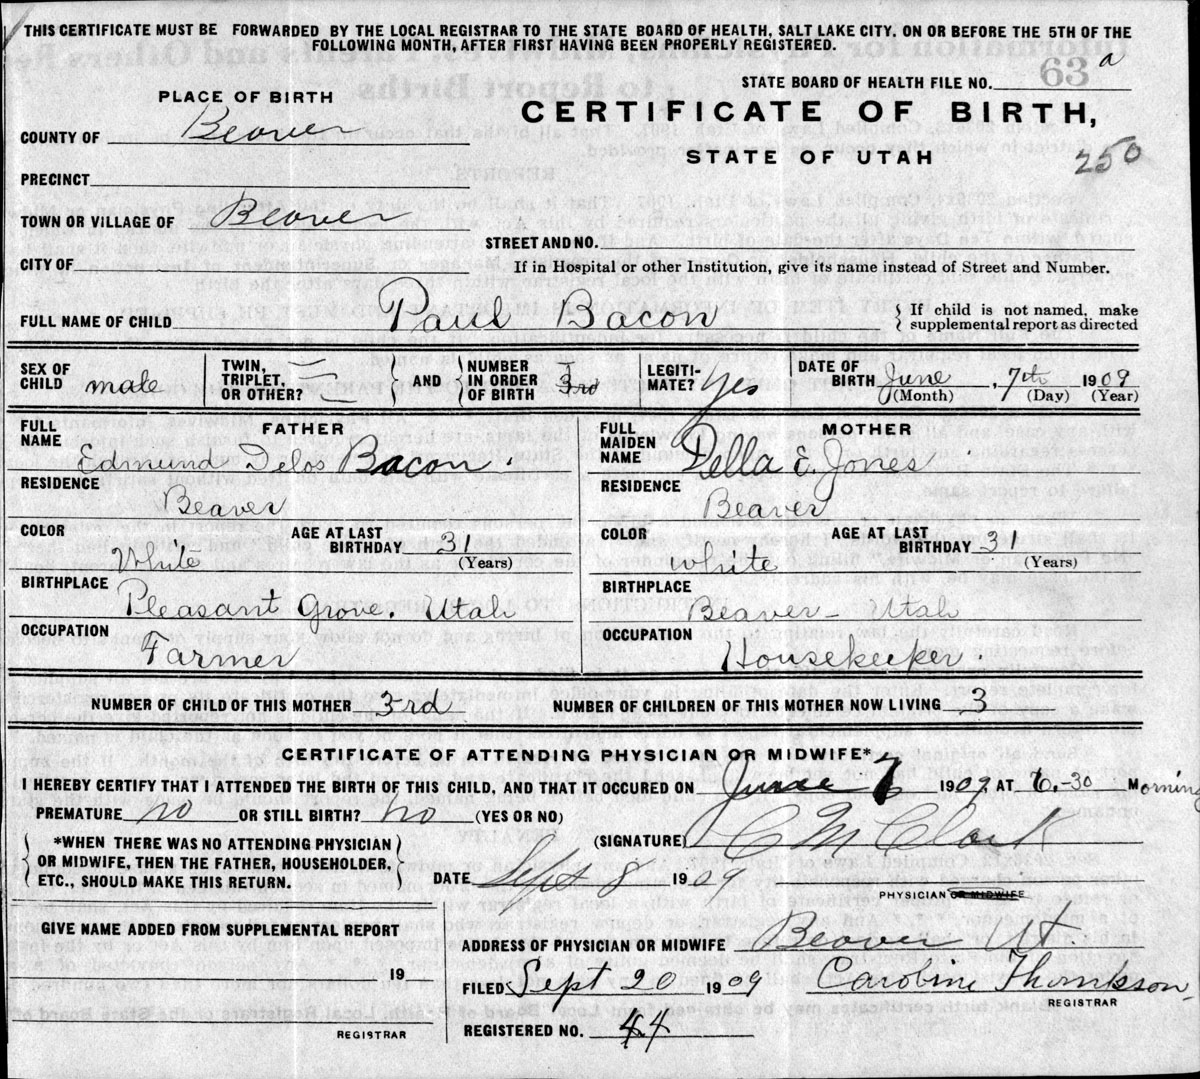 THIS CERTIFICATE MUST BE FORWARDED BY THE LOCAL REGISTRAR TO THE STATE BOARD OF HEALTH, SALT LAKE CITY, ON OR BEFORE THE 5TH OF THE
FOLLOWING MONTH, AFTER FIRST HAVING BEEN PROPERLY REGISTERED.
63 a
STATE BOARD OF HEALTH FILE NO.
PLACE OF BIRTH
CERTIFICATE OF BIRTH,
COUNTY OF Beaver
STATE OF UTAH
250
PRECINCT
TOWN OR VILLAGE OF Beaver
STREET AND NO.
CITY OF
If in Hospital or other Institution, give its name instead of Street and Number.
FULL NAME OF CHILD Paul Bacon
{ If child is not named, make
supplemental report as directed
SEX OF CHILD male
TWIN, TRIPLET, OR OTHER?
{ AND }
NUMBER IN ORDER OF BIRTH 3rd
LEGITIMATE? Yes
DATE OF BIRTH June, 7th 1909
(Month) (Day) (Year)
FULL NAME
FATHER
Edmund Delos Bacon
RESIDENCE
Beaver
COLOR White
AGE AT LAST BIRTHDAY 31
(Years)
BIRTHPLACE
Pleasant Grove. Utah
OCCUPATION
Farmer
FULL MAIDEN NAME
MOTHER
Della E. Jones
RESIDENCE
Beaver
COLOR white
AGE AT LAST BIRTHDAY 31
(Years)
BIRTHPLACE
Beaver - Utah
OCCUPATION
Housekeeper.
NUMBER OF CHILD OF THIS MOTHER 3rd
NUMBER OF CHILDREN OF THIS MOTHER NOW LIVING 3
CERTIFICATE OF ATTENDING PHYSICIAN OR MIDWIFE*
I HEREBY CERTIFY THAT I ATTENDED THE BIRTH OF THIS CHILD, AND THAT IT OCCURED ON June 7 1909, AT 6.30 Morning
PREMATURE no OR STILL BIRTH? no (YES OR NO)
{ *WHEN THERE WAS NO ATTENDING PHYSICIAN
OR MIDWIFE, THEN THE FATHER, HOUSEHOLDER,
ETC., SHOULD MAKE THIS RETURN. }
(SIGNATURE) C M Clark
DATE Sept 8 1909
PHYSICIAN OR MIDWIFE
GIVE NAME ADDED FROM SUPPLEMENTAL REPORT
19
REGISTRAR
ADDRESS OF PHYSICIAN OR MIDWIFE Beaver Ut
FILED Sept 20 1909 Caroline Thomkson
REGISTRAR
REGISTERED NO. 44